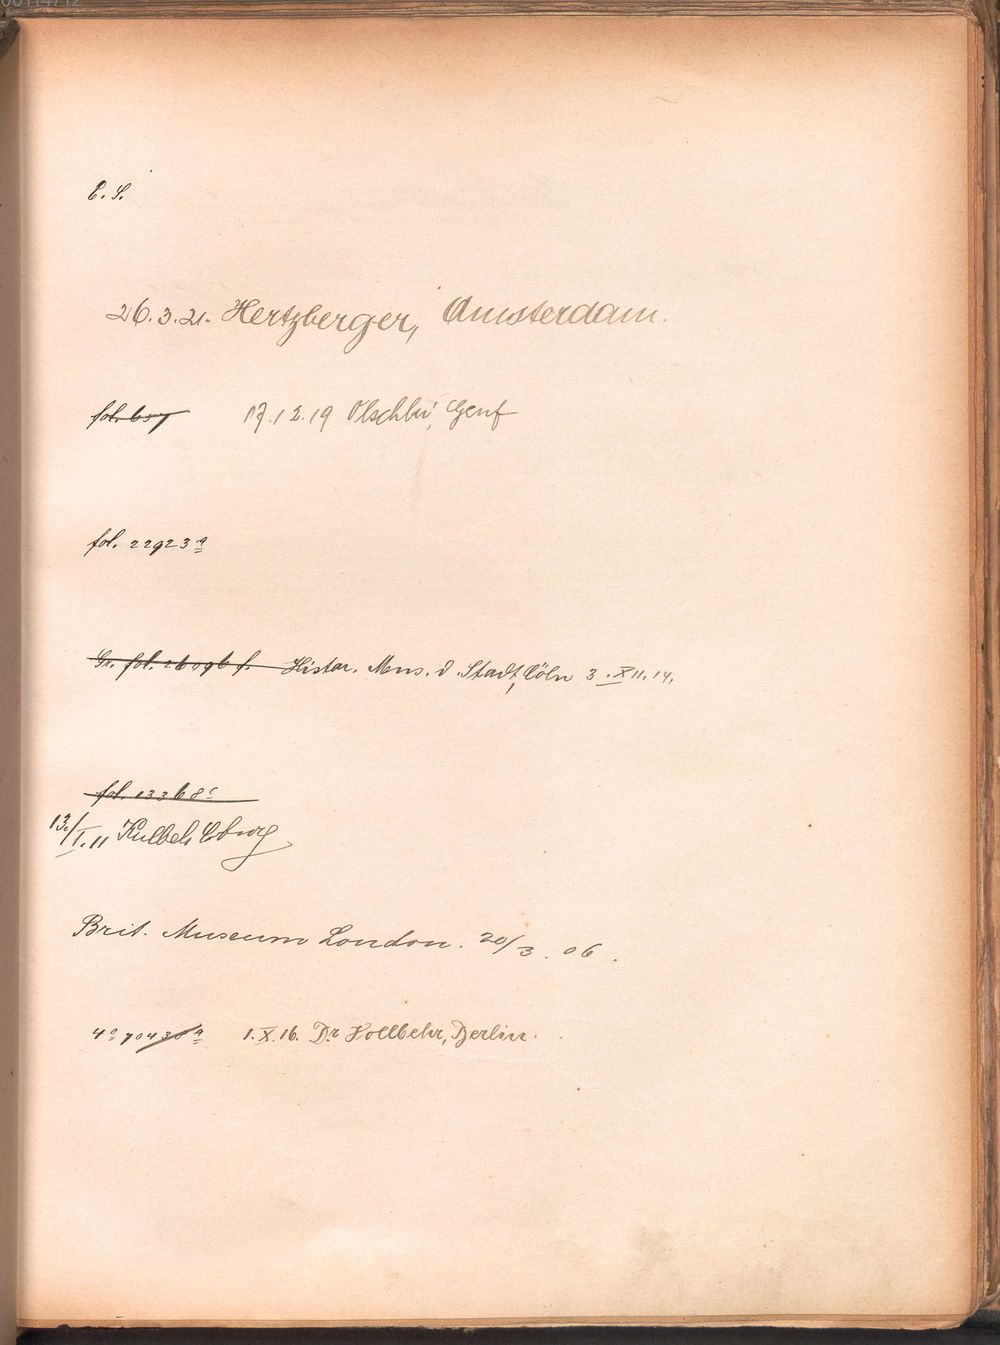 E. S.
26.3.21. Hertzberger, Amsterdam.
fol. 657 17.12.19 Olschki, Genf
fol. 22923ª
Gr. fol. 26096 f. Histor. Mus. d. Stadt Cöln 3.XII.14.
fol. 13368ᶜ
13./I.11
Brit. Museum London. 20/3. 06.
4º 70430ª 1.X.16. Dr. Vollbehr, Berlin.